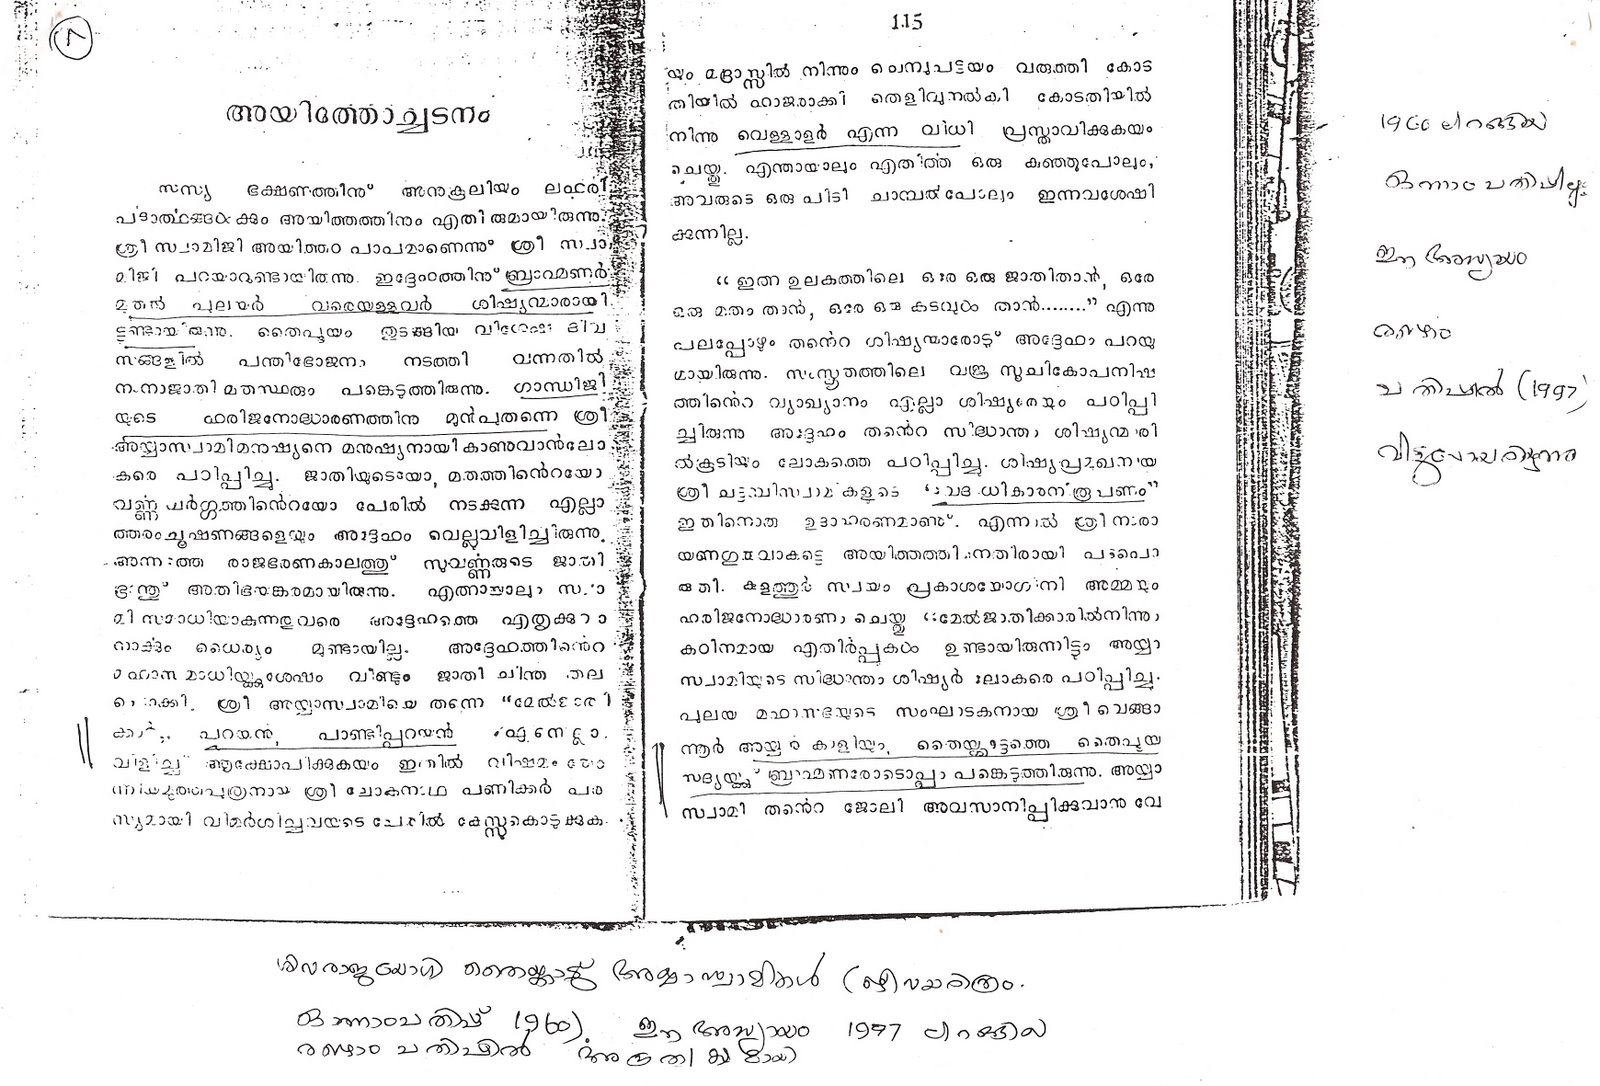 അയിത്തോച്ചടനം
സസ്യ ഭക്ഷണത്തിന് അനുകൂലിയും ലഹരി
പദാർത്ഥങ്ങൾക്കും അയിത്തത്തിനും എതിരുമായിരുന്നു.
ശ്രീ സ്വാമിജി അയിത്തം പാപമാണെന്ന് ശ്രീ സ്വാ
മിജി പറയാറുണ്ടായിരുന്നു. ഇദ്ദേഹത്തിന് ബ്രാഹ്മണർ
മുതൽ പുലയർ വരെയുള്ളവർ ശിഷ്യന്മാരായി
ട്ടുണ്ടായിരുന്നു. തൈപ്പൂയം തുടങ്ങിയ വിശേഷ ദിവ
സങ്ങളിൽ പന്തിഭോജനം നടത്തി വന്നതിൽ
നാനാജാതി മതസ്ഥരും പങ്കെടുത്തിരുന്നു. ഗാന്ധിജി
യുടെ ഹരിജനോദ്ധാരണത്തിനു മുൻപുതന്നെ ശ്രീ
അയ്യാസ്വാമി മനുഷ്യനെ മനുഷ്യനായി കാണുവാൻ ലോ
കരെ പഠിപ്പിച്ചു. ജാതിയുടെയോ, മതത്തിൻെറയോ
വണ്ണ വർഗ്ഗത്തിൻെറയോ പേരിൽ നടക്കുന്ന എല്ലാ
ത്തരം ചൂഷണങ്ങളെയും അദ്ദേഹം വെല്ലുവിളിച്ചിരുന്നു.
അന്നത്തെ രാജഭരണകാലത്ത് സുവണ്ണരുടെ ജാതി
ഭ്രാന്ത് അതിഭയങ്കരമായിരുന്നു. എന്നാലും സ്വാ
മി സമാധിയാകുന്നതുവരെ അദ്ദേഹത്തെ എതൃക്കുവാ
നാർക്കും ധൈര്യം മുണ്ടായില്ല. അദ്ദേഹത്തിൻെറ
മഹാസമാധിയ്ക്കുശേഷം വീണ്ടും ജാതി ചിന്ത തല
പൊക്കി. ശ്രീ അയ്യാസ്വാമിയെ തന്നെ "മേൽജാതി
പറയൻ, പാണ്ടിപ്പറയൻ എന്നെല്ലാം
വിളിച്ച് ആക്ഷേപിക്കുകയും ഇതിൽ വിഷമം തോ
ന്നിയ പുത്രനായ ശ്രീ ലോകനാഥ പണിക്കർ പര
സ്യമായി വിമർശിച്ചവരുടെ പേരിൽ കേസ്സുകൊടുക്കുക
115
യും മദ്രാസ്സിൽ നിന്നും ചെമ്പുപട്ടയം വരുത്തി കോട
തിയിൽ ഹാജരാക്കി തെളിവുനൽകി കോടതിയിൽ
നിന്നു വെള്ളാളർ എന്ന വിധി പ്രസ്താവിക്കുകയും
ചെയ്തു. എന്തായാലും എതിർത്ത ഒരു കുഞ്ഞുപോലും,
അവരുടെ ഒരു പിടി ചാമ്പൽപോലും ഇന്നവശേഷി
ക്കുന്നില്ല.
"ഇന്ത ഉലകത്തിലെ ഒരേ ഒരു ജാതിതാൻ, ഒരേ
ഒരു മതം താൻ, ഒരേ ഒരു കടവുൾ താൻ........" എന്നു
പലപ്പോഴും തൻെറ ശിഷ്യന്മാരോട് അദ്ദേഹം പറയു
മായിരുന്നു. സംസ്കൃതത്തിലെ വജ്ര സൂചികോപനിഷ
ത്തിൻെറ വ്യാഖ്യാനം എല്ലാ ശിഷ്യരേയും പഠിപ്പി
ച്ചിരുന്നു അദ്ദേഹം തൻെറ സിദ്ധാന്തം ശിഷ്യന്മാരി
ൽകൂടിയും ലോകത്തെ പഠിപ്പിച്ചു. ശിഷ്യപ്രമുഖനായ
ശ്രീ ചട്ടമ്പിസ്വാമികളുടെ "വേദാധികാരനിരൂപണം"
ഇതിനൊരു ഉദാഹരണമാണ്. എന്നാൽ ശ്രീ നാരാ
യണഗുരുവാകട്ടെ അയിത്തത്തിനെതിരായി പടപൊ
രുതി. കുളത്തൂർ സ്വയം പ്രകാശയോഗിനി അമ്മയും
ഹരിജനോദ്ധാരണം ചെയ്തു "മേൽജാതിക്കാരിൽനിന്നും
കഠിനമായ എതിർപ്പുകൾ ഉണ്ടായിരുന്നിട്ടും അയ്യാ
സ്വാമിയുടെ സിദ്ധാന്തം ശിഷ്യർ ലോകരെ പഠിപ്പിച്ചു.
പുലയ മഹാസഭയുടെ സംഘാടകനായ ശ്രീ വെങ്ങാ
ന്നൂർ അയ്യൻ കാളിയും, തൈയ്ക്കാട്ടത്തെ തൈപ്പൂയ
സദ്യയ്ക്ക് ബ്രാഹ്മണരോടൊപ്പം പങ്കെടുത്തിരുന്നു. അയ്യാ
സ്വാമി തൻെറ ജോലി അവസാനിപ്പിക്കുവാൻ വേ
1960 ലിറങ്ങിയ
ഒന്നാം പതിപ്പിലു
ഈ അദ്ധ്യായം
രണ്ടാം
പതിപ്പിൽ (1997)
വിട്ടുപോയിരുന്നു
ശിവരാജയോഗി തൈക്കാട്ട് അയ്യാസ്വാമികൾ (ജീവചരിത്രം.
ഒന്നാംപതിപ്പ് 1960). ഈ അദ്ധ്യായം 1997 ലിറങ്ങിയ
രണ്ടാം പതിപ്പിൽ അപ്രത്യക്ഷമായി